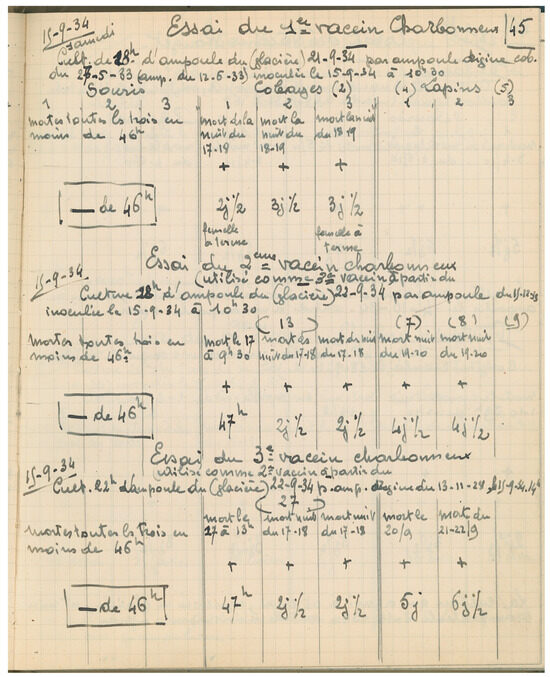 15-9-34
Samedi
Essai du 1er vaccin Charbonneux
45
Cult. de 28h d'ampoule du (glacière) 21-9-34 par ampoule origine cob.
du 5-33 (amp. du 12-6-33) inoculée le 15-9-34 à 10h30
Souris Cobayes (2) (4) Lapins (5)
1 2 3 1 2 3 1 2 3
mortes toutes les trois en mort de la mort la mort la nuit
moins de 46h nuit du nuit du du 18-19
17-18 18-19
+ + +
— de 46h 2j 1/2 3j 1/2 3j 1/2
femelle femelle à
à terme terme
Essai du 2eme vaccin charbonneux
(utilisé comme 3e vaccin à partir du
15-9-34
Culture 28h d'ampoule du (glacière) 22-9-34 par ampoule du
inoculée le 15-9-34 à 10h30
(13) (7) (8) (9)
mortes toutes trois en mort le 17 mort de mort de nuit mort nuit mort nuit
moins de 46h à 9h30 nuit du 17-18 du 17-18 du 19-20 du 19-20
+ + + + +
— de 46h 47h 2j 1/2 2j 1/2 4j 1/2 4j 1/2
Essai du 3e vaccin charbonneux
(utilisé comme 2e vaccin à partir du
15-9-34
Cult. 22h d'ampoule du (glacière) 22-9-34 p. amp. origine du 13-11-28, le 15-9-34 14h
27
mortes toutes les trois en mort le mort nuit mort nuit mort le mort du
moins de 46h 17 à 13h du 17-18 du 17-18 20/9 21-22/9
+ + + + +
— de 46h 47h 2j 1/2 2j 1/2 5j 6j 1/2